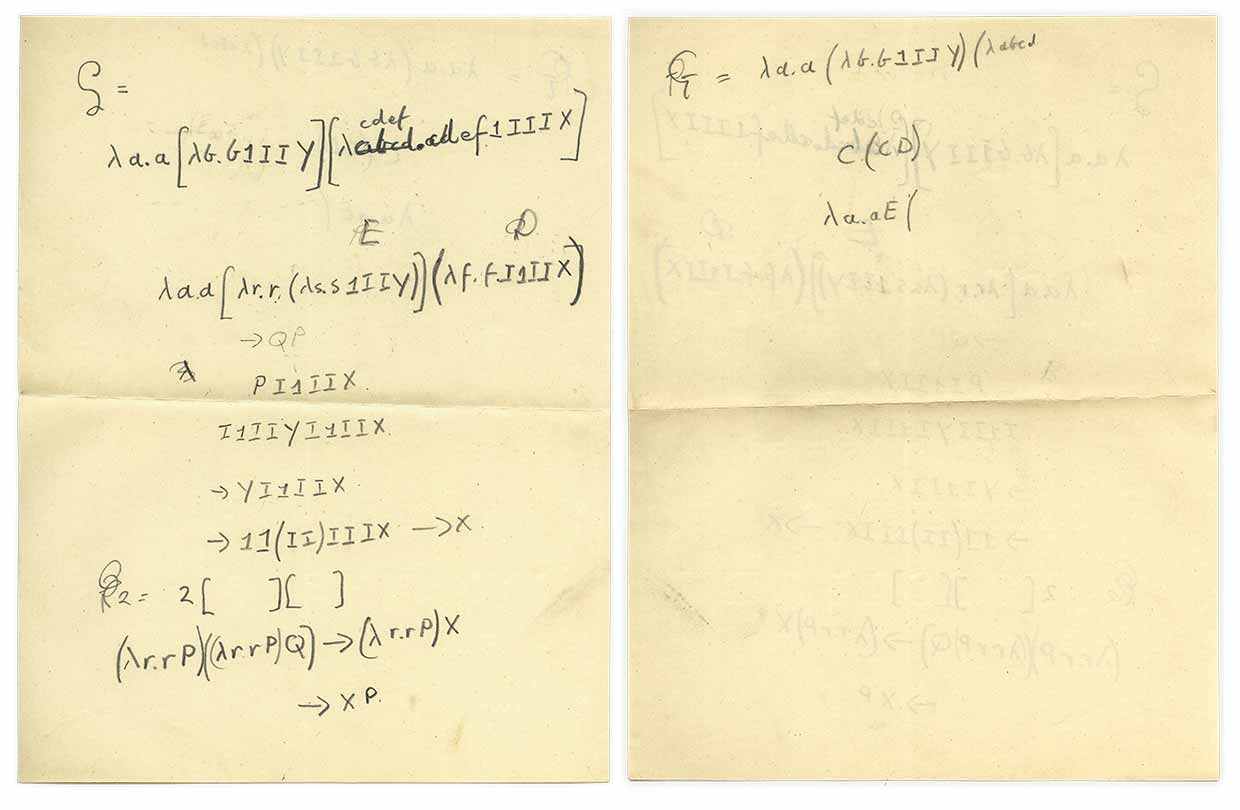 =
cdef
λa.a[λb.b1IIY][λ def1IIIX]
E
λa.a[λr.r.(λs.s1IIY)](λf.f.I1IIX)
→QP
PI1IIX.
I1IIYI1IIX.
→YI1IIX.
→11(II)IIIX →X.
2= 2[ ][ ]
(λr.rP)((λr.rP)Q)→(λr.rP)X
→XP.
= λa.a(λb.b1IIY)(λabcd
C(CD)
λa.aE(